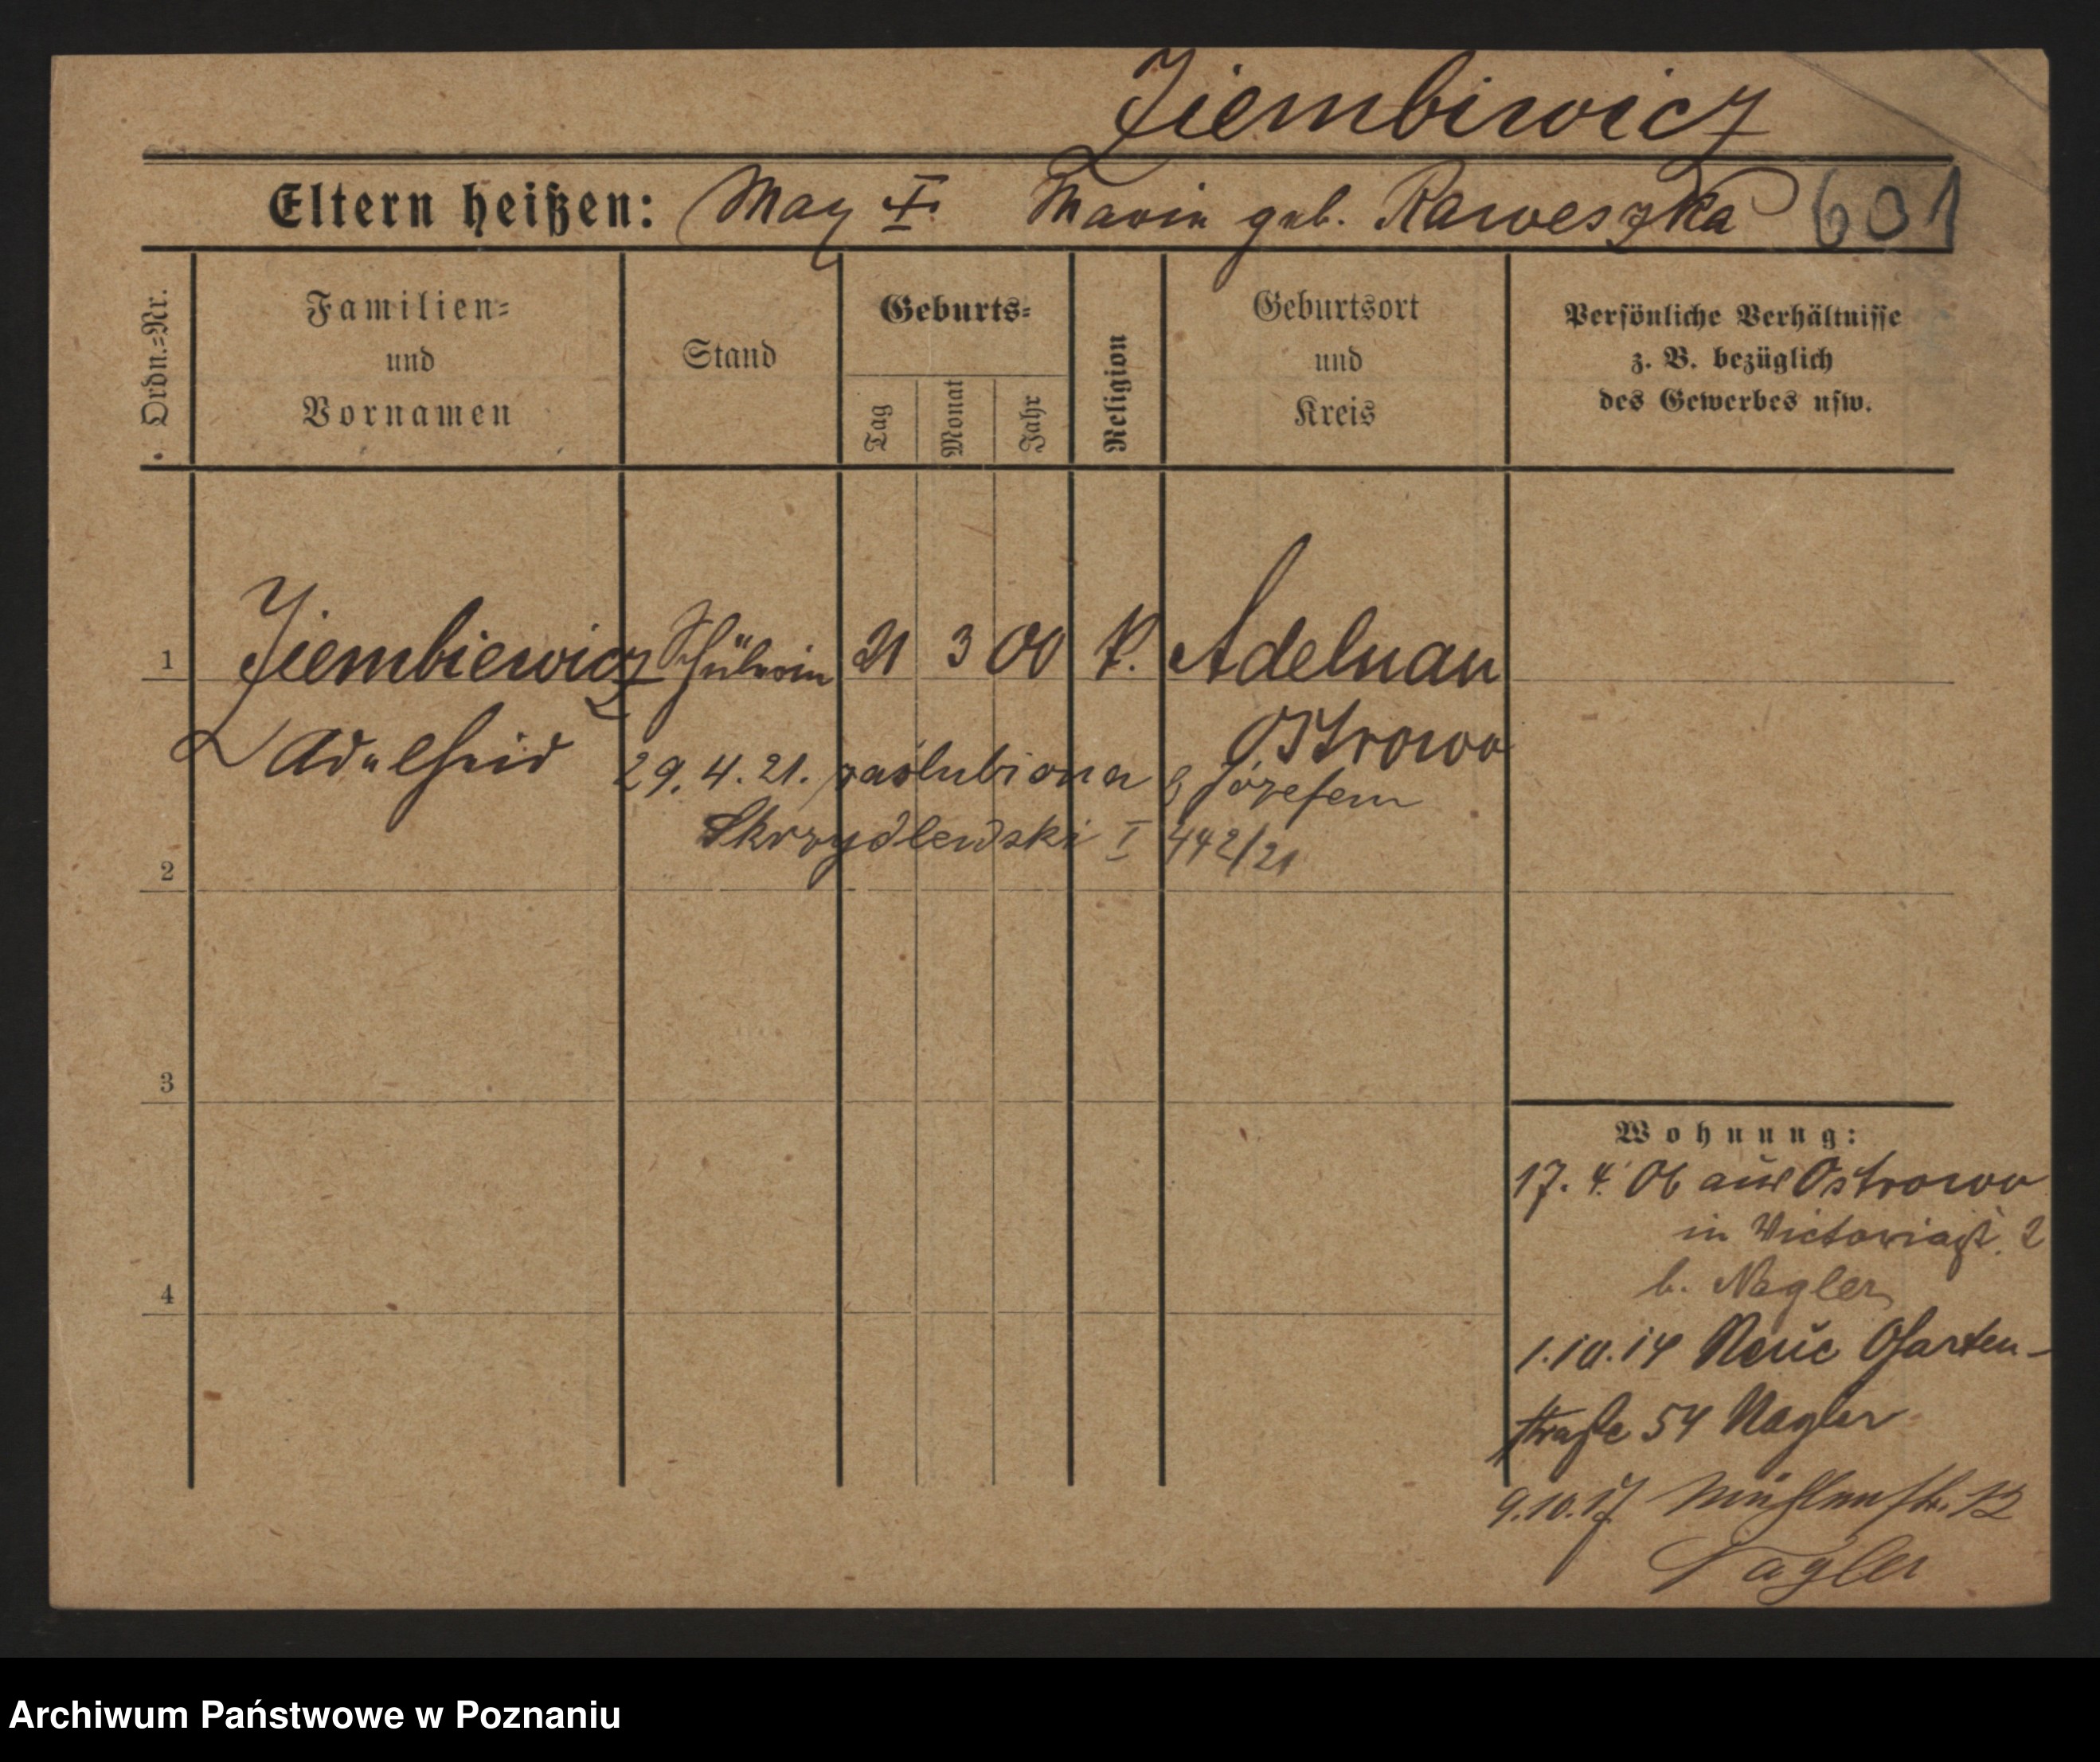 Ziembiwicz
Eltern heißen: Max †. Maria geb. Raweszka 601
Ordn.-Nr.
Familien-
und
Vornamen
Stand
Geburts-
Tag
Monat
Jahr
Religion
Geburtsort
und
Kreis
Persönliche Verhältnisse
z. B. bezüglich
des Gewerbes usw.
1 Ziembiewicz Schülerin 21 3 00 k. Adelnau
Adelheid Ostrowo
29. 4. 21. zaślubiona z Józefem
Skrzydlewski I 442/21
2
3
4
Wohnung:
17. 4. 06 aus Ostrowo
in Victoriastr. 2
b. Nagler
1.10.14 Neue Garten-
straße 54 Nagler
9.10.17 Mühlenstr. 12
Nagler
Archiwum Państwowe w Poznaniu